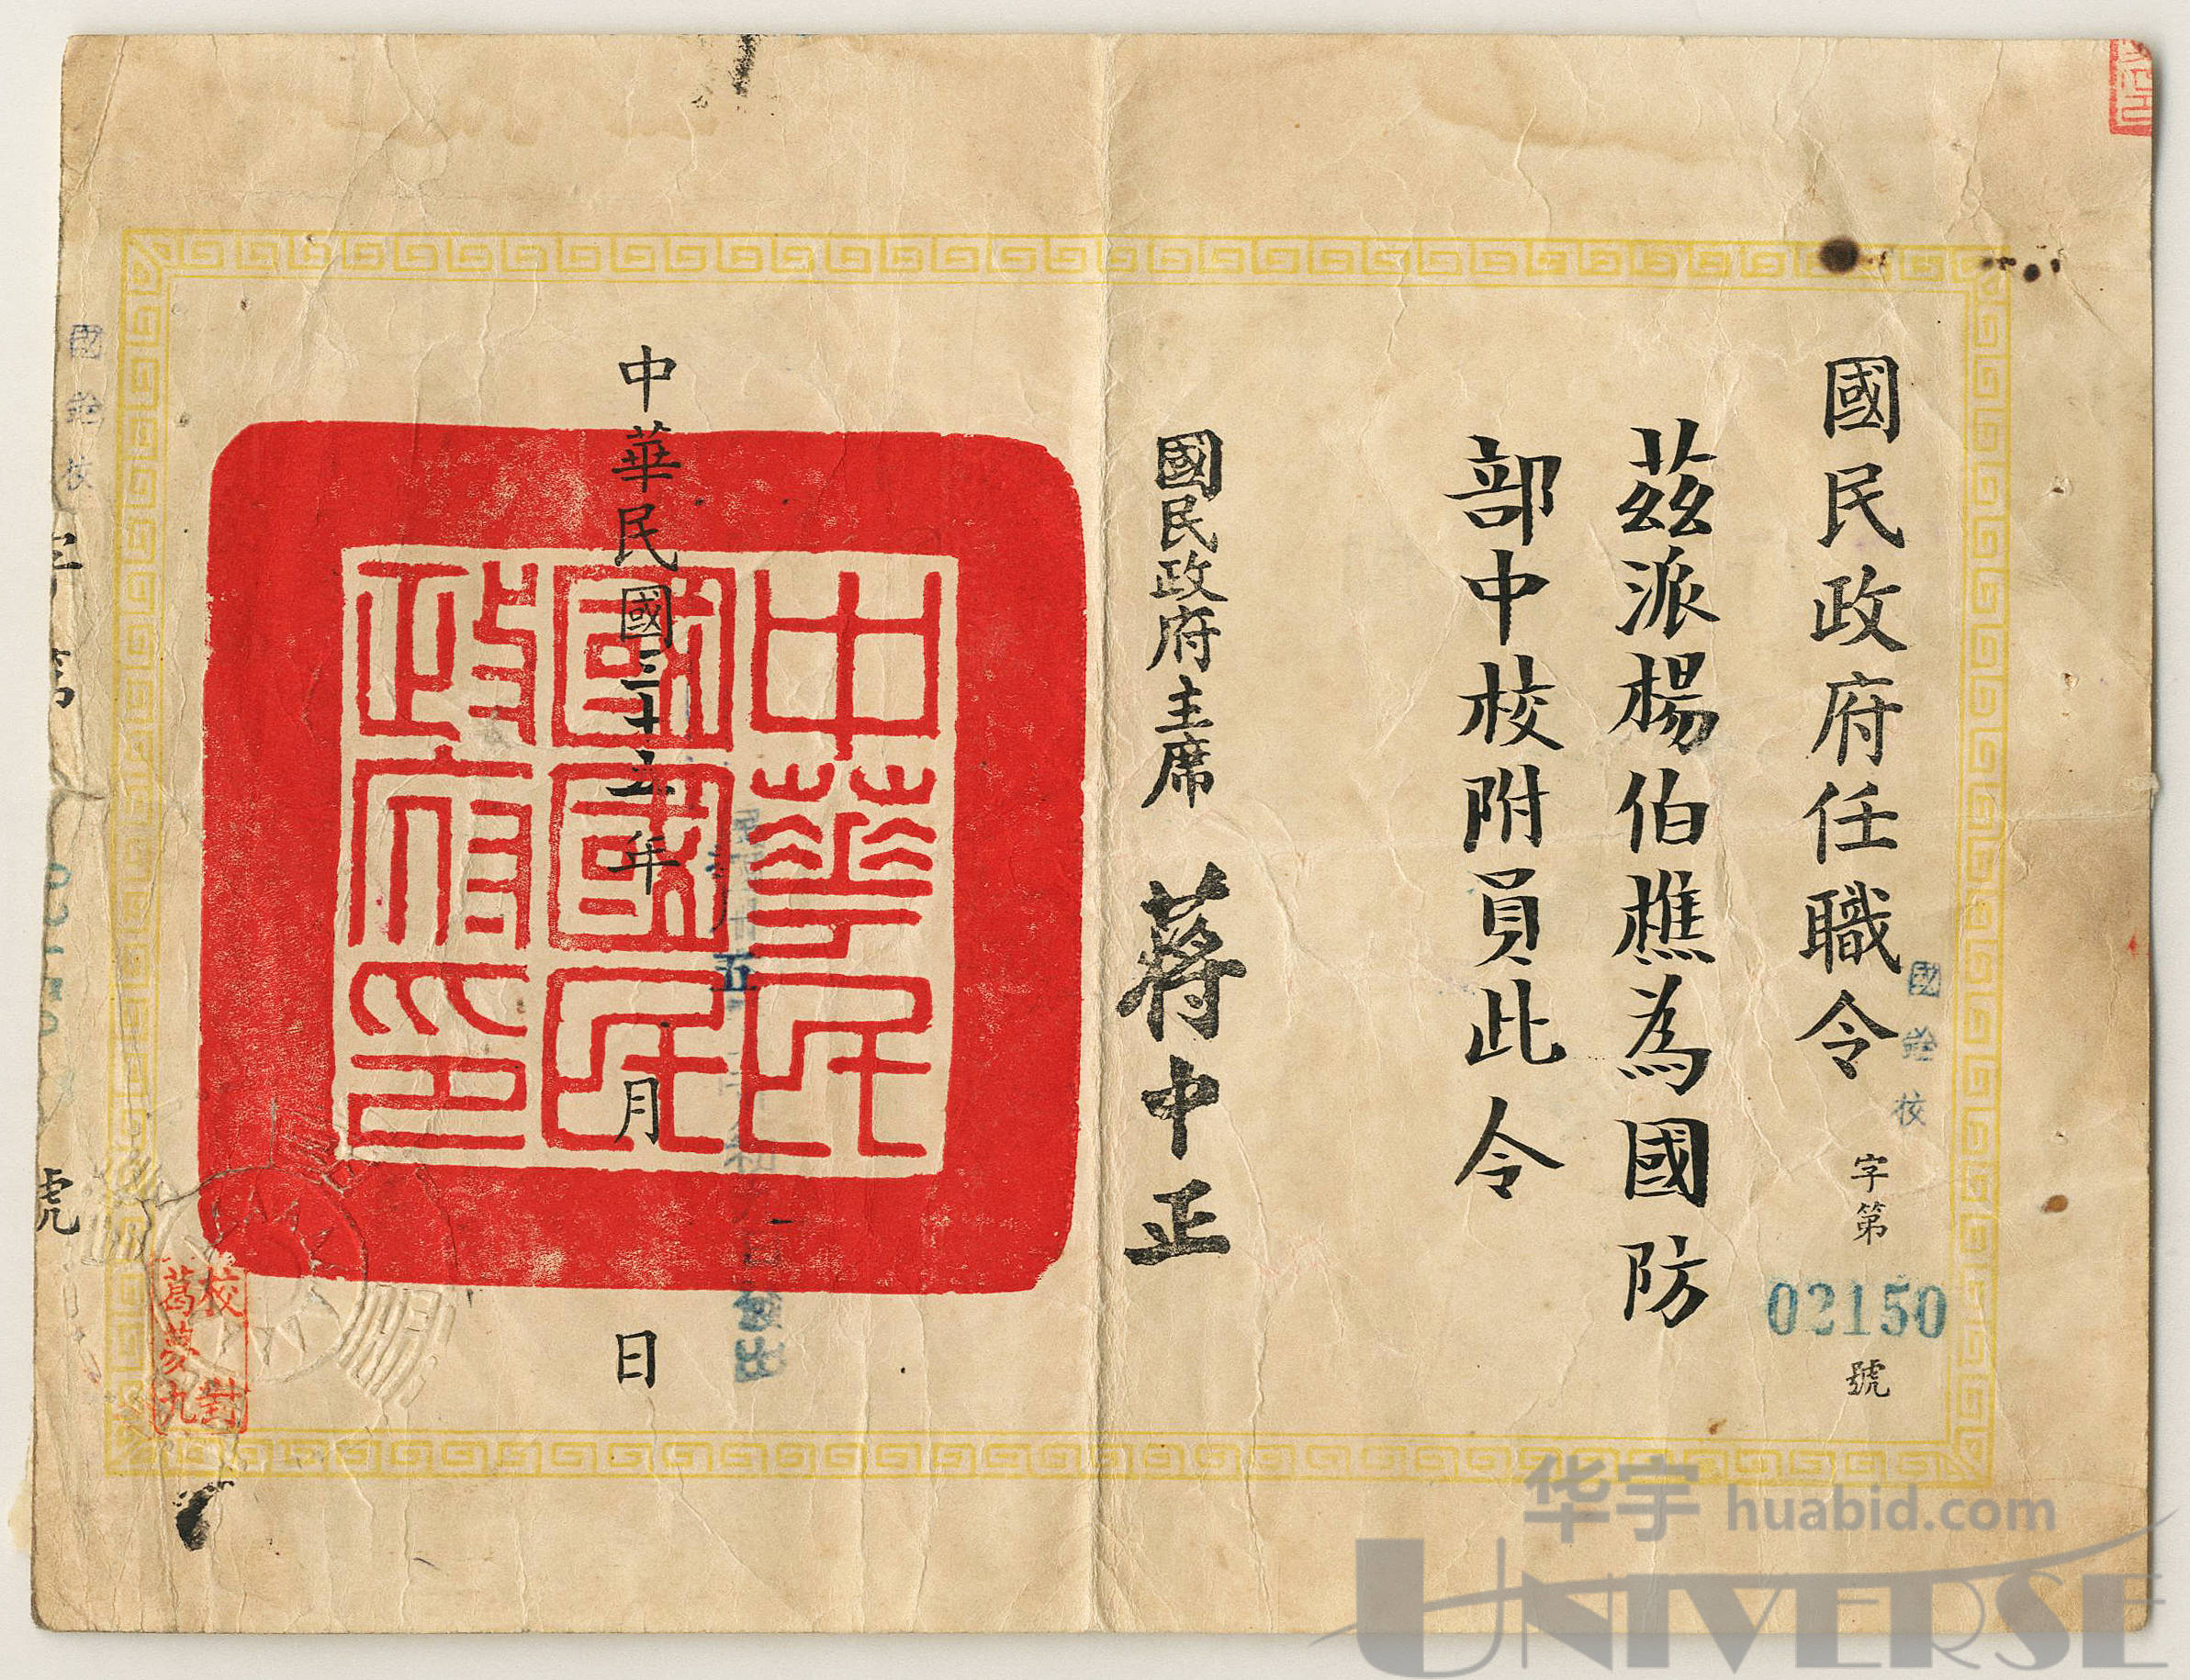 國民政府任職令
國銓校
字第
02150
號
茲派楊伯樵為國防
部中校附員此令
國民政府主席 蔣中正
中華民國三十五年 月 日
中華民
國國民
政府印
五
校對
葛蓼九
國銓校
字第
號
华宇 huabid.com
UNIVERSE